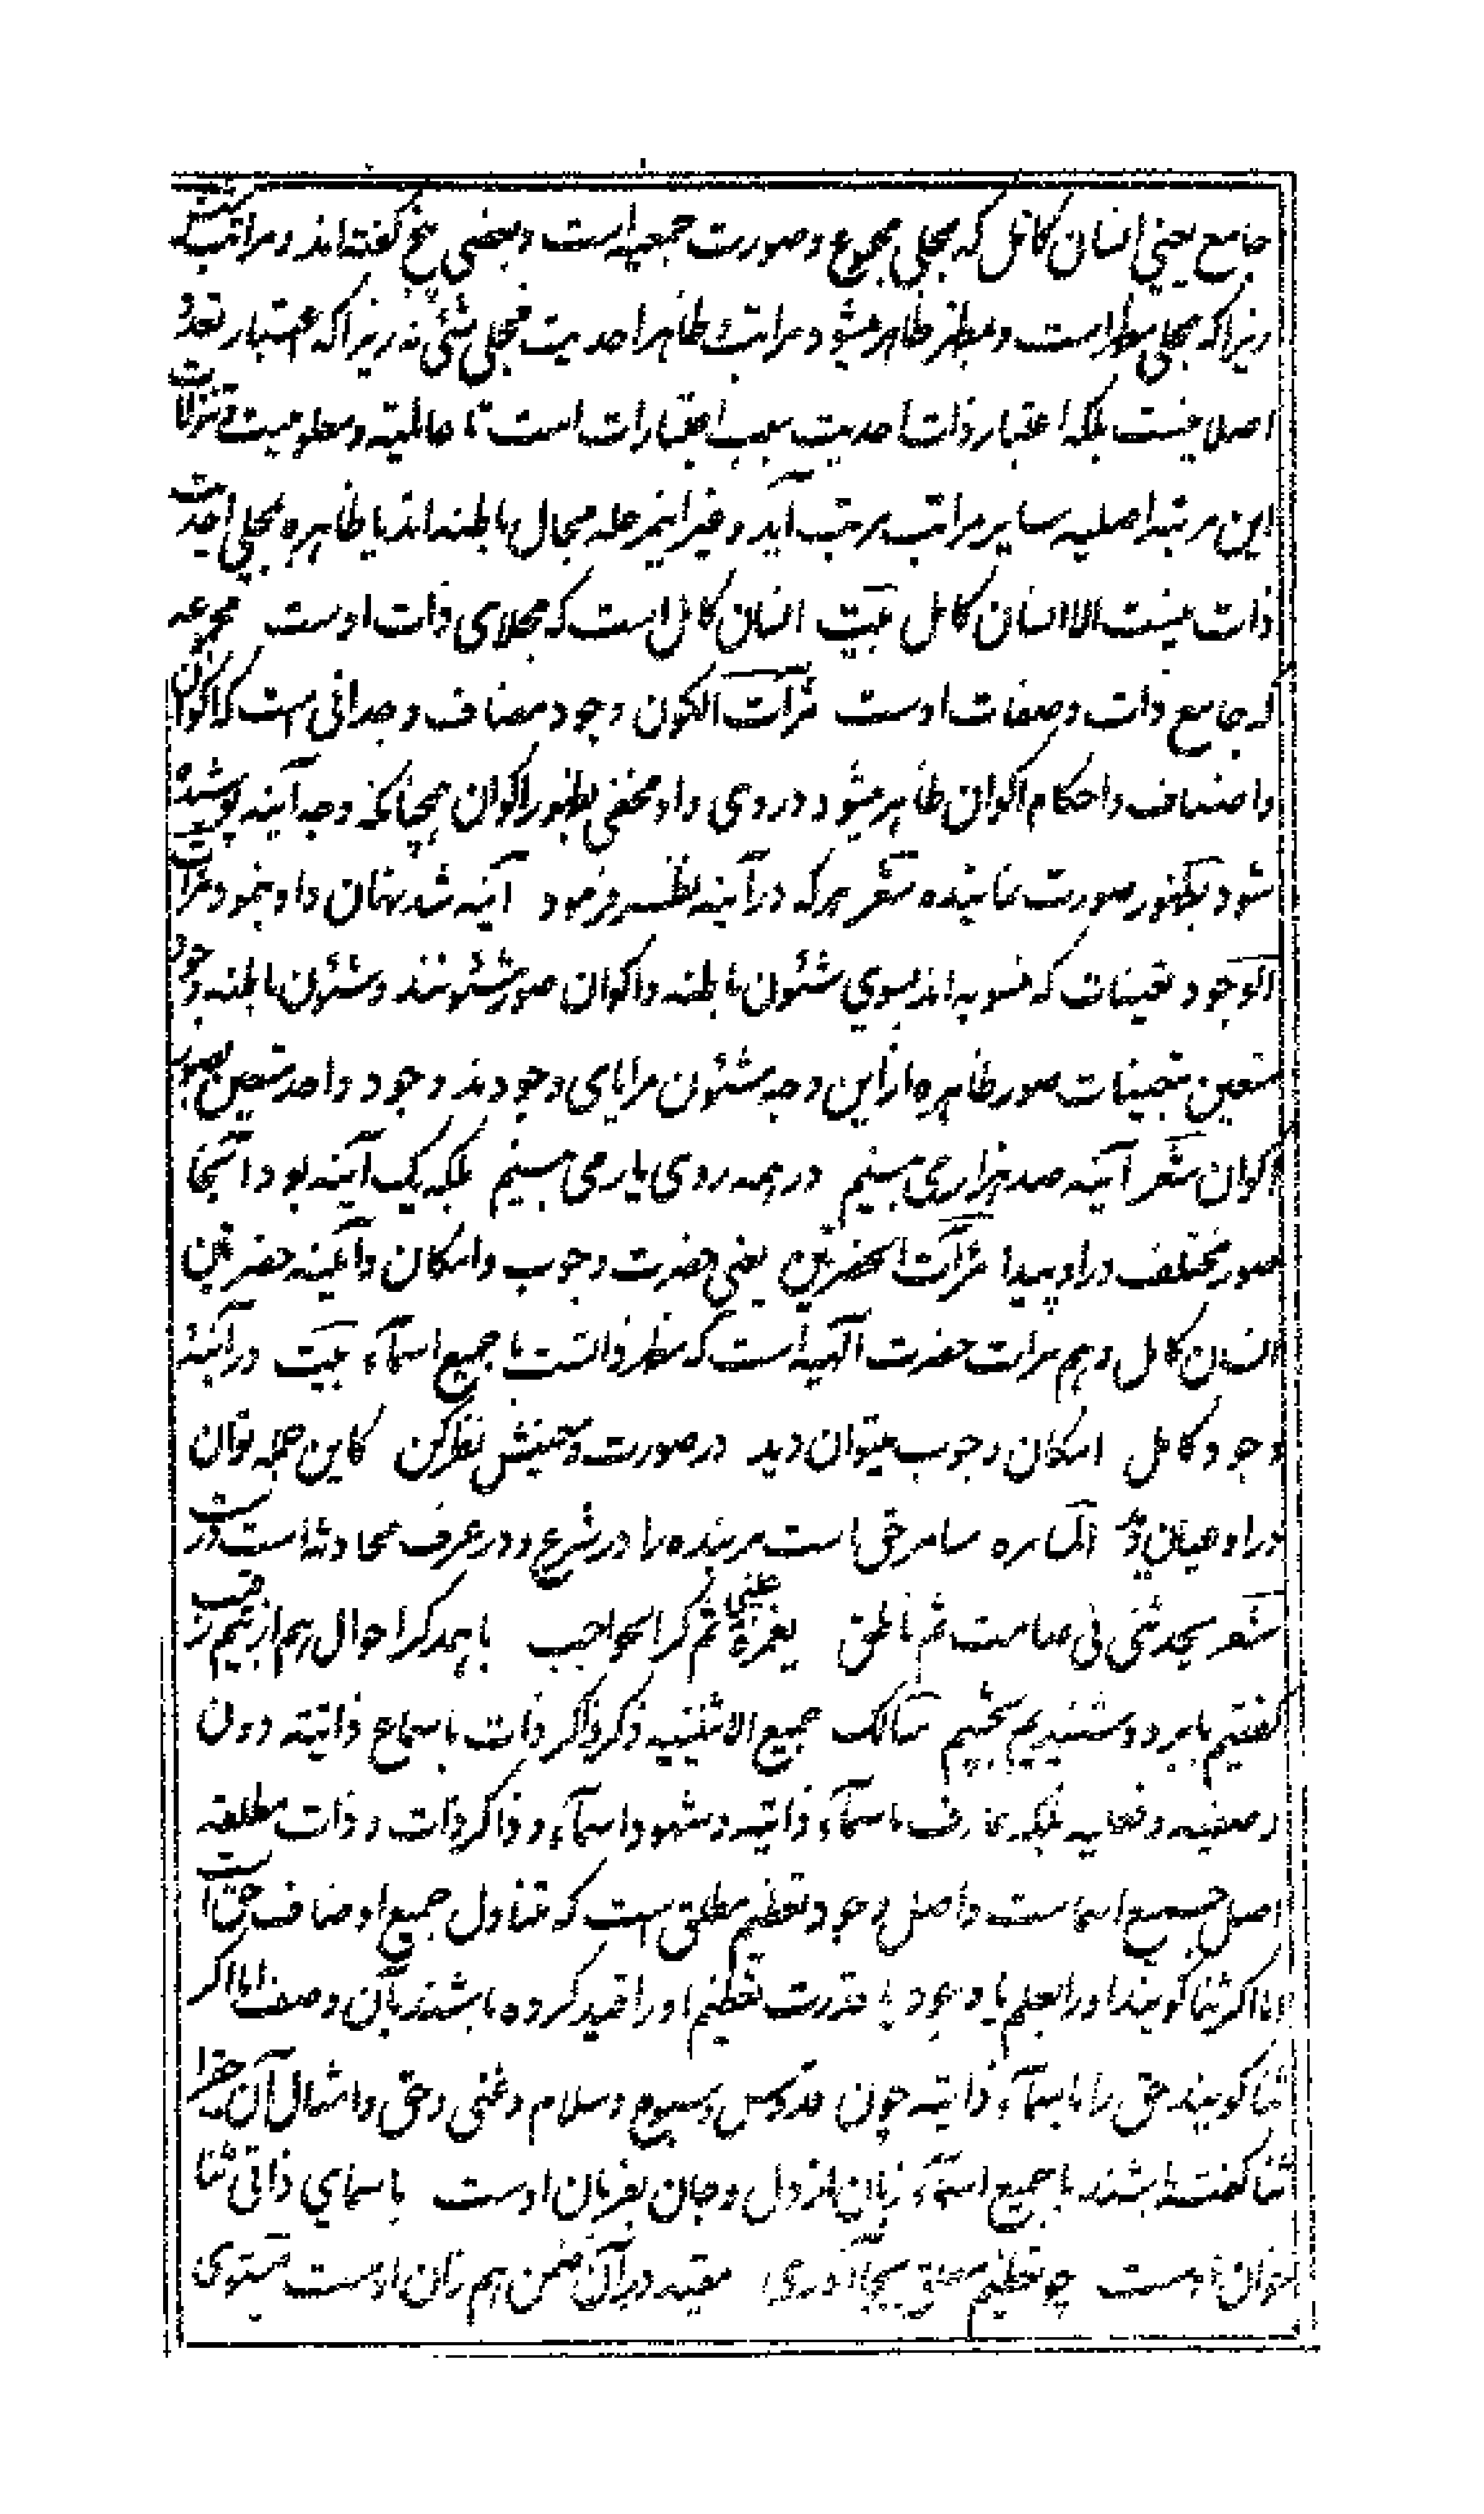 جامع یعنی انسان کامل که مجلی مجموع و صورت جمعیه است و بعضی پنج گفته‌اند و مراتب
زیرا که مجلی مظهر است و مظهر ظاهر میشود و مراتب ظاهر احدیت مجلی شئی نه زیرا که اعتبار تعدد
اصلا نیست بلکه اعتبار ذات احدیت سبب اعتبارات است تا عالمیه و معلومیت و تنزلات
این مرتبه اصلیه سایر مراتب مرتب آید و غیر اینمرحله مجال باطنه‌اند یا ظاهره مجلی احدیت
ذات نیست الا انسان کامل بیت انسان کامل است که مجلای ذات اوست مجموعه
که جامع ذات و صفات اوست مرآت الکون وجود مضاف وحدانی است که اکوان
و اضاف و احکام اکوان ظاهر میشود در وی و او مخفی بظهور اکوان همچنانکه وجه آینه پوشیده
شود بظهور صورت نماینده شعر هر که در آینه نظر فرمود آینه شد نهان و او بنمود مرآت
الوجود تعینات که منسوبه‌اند بسوی شئون باطنه و اکوان صور شئونند و شئون باطنه وجود
متعین بتعینات صور ظاهره از این وجه شئون مرایای وجودند وجود واحد متعین بصور
اکوان شعر آینه صد هزار می بینم در همه روی یار می بینم بلکه یک آینه بود آنجا
صور مختلف در او پیدا مرآت الحضرتین یعنی حضرت وجوب و امکان و آینه حضرتین
انسان کامل و هم مرات حضرت الهیه است که مظهر ذاتست با جمیع اسمآء بیت در آینه
وجود کامل امکان وجوب میتوان دید در صورت و معنیش نظر کن کاین جمله توان
در او عیان دید المسامره سامر حق است مر بنده را در شرع و در عرف محادثه است در شب
شعر یحدثنی فی صامت ثم ناطق بغمزة عینی ثم کر الحواجب با همدگر احوال هم از نیم رقیب
گفتیم بابرو و شنیدیم بچشم جمیع الاثنینیه ذکر ذاکر ذات باسماع ذاتیه دون
وصفیه و فعلیه بلکه عارف باسمآء ذاتیه و شهود اسمآء و ذاکر ذات و ذات مطلقه
اصل جمیع اسماست و اصل وجود تعظیم مطلق است که متناول جمیع اوصاف حق است
اما اگر ثنا گویند او را بعلم یا وجود یا قدرت تعظیم او را قید کرده باشند بآن وصف اما اگر
ثنا گویند حق را باسمآء ذاتیه چون قدوس و سبوح و سلام و غنی و حق و امثال آن حقرا
ثنا گفته باشند با جمیع اسمآء زبان از دل و جان بفرمان اوست باسمای ذاتی ثنا
خوان اوست چو تعظیم مطلق بجا آوری مقید در آن ضمن هم زان اوست منتهی